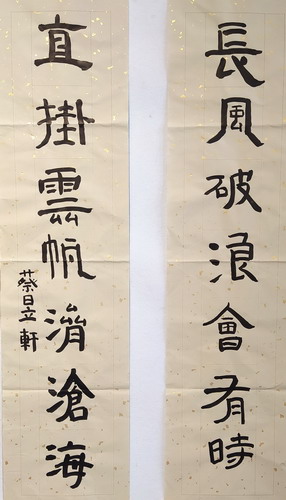 長風破浪會有時
直掛雲帆濟滄海
蔡昱軒